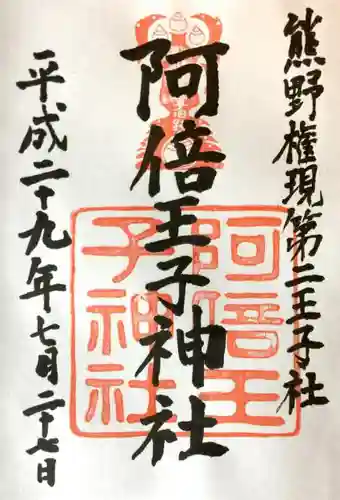 熊野権現第二王子社
阿倍王子神社
平成二十九年七月二十七日
阿倍王
子神社